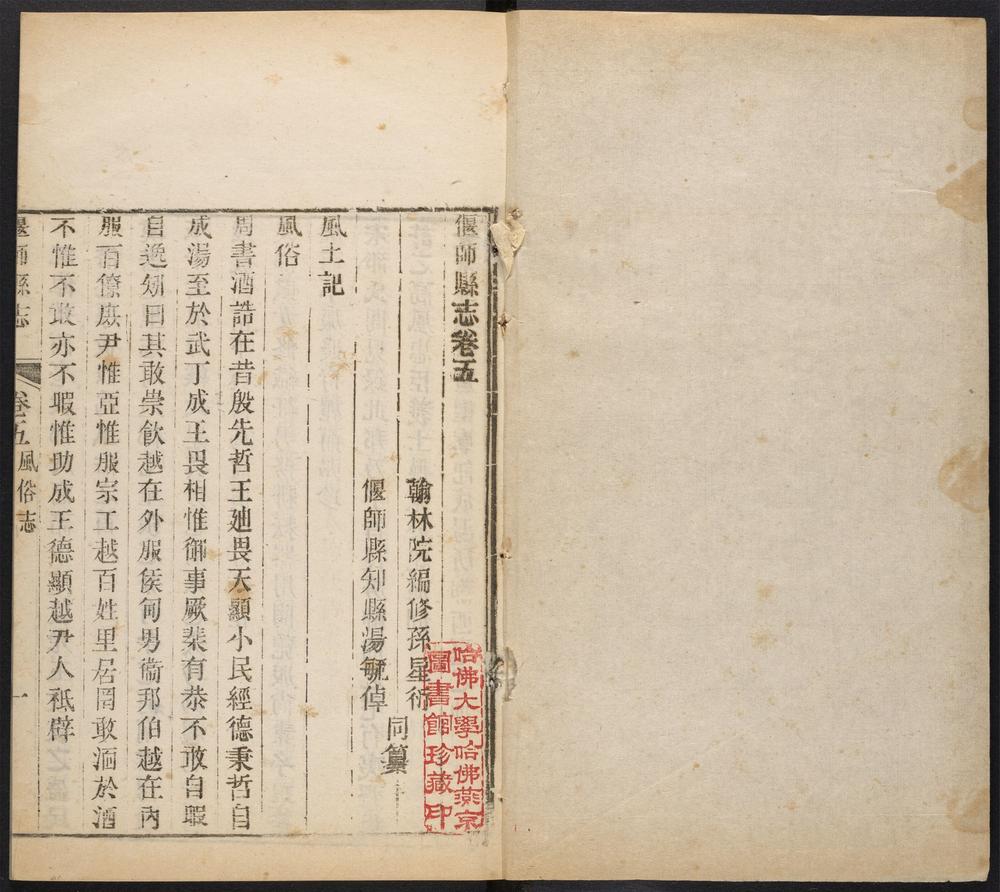 偃師縣志卷五
翰林院編修孫星衍
偃師縣知縣湯毓倬
同纂
風土記
風俗
周書酒誥在昔殷先哲王廸畏天顯小民經德秉哲自
成湯至於武丁成王畏相惟御事厥棐有恭不敢自暇
自逸矧曰其敢崇飲越在外服侯甸男衞邦伯越在內
服百僚庶尹惟亞惟服宗工越百姓里居罔敢湎於酒
不惟不敢亦不暇惟助成王德顯越尹人祗辟
偃師縣志 卷五 風俗志 一
哈佛大學哈佛燕京
圖書館珍藏印